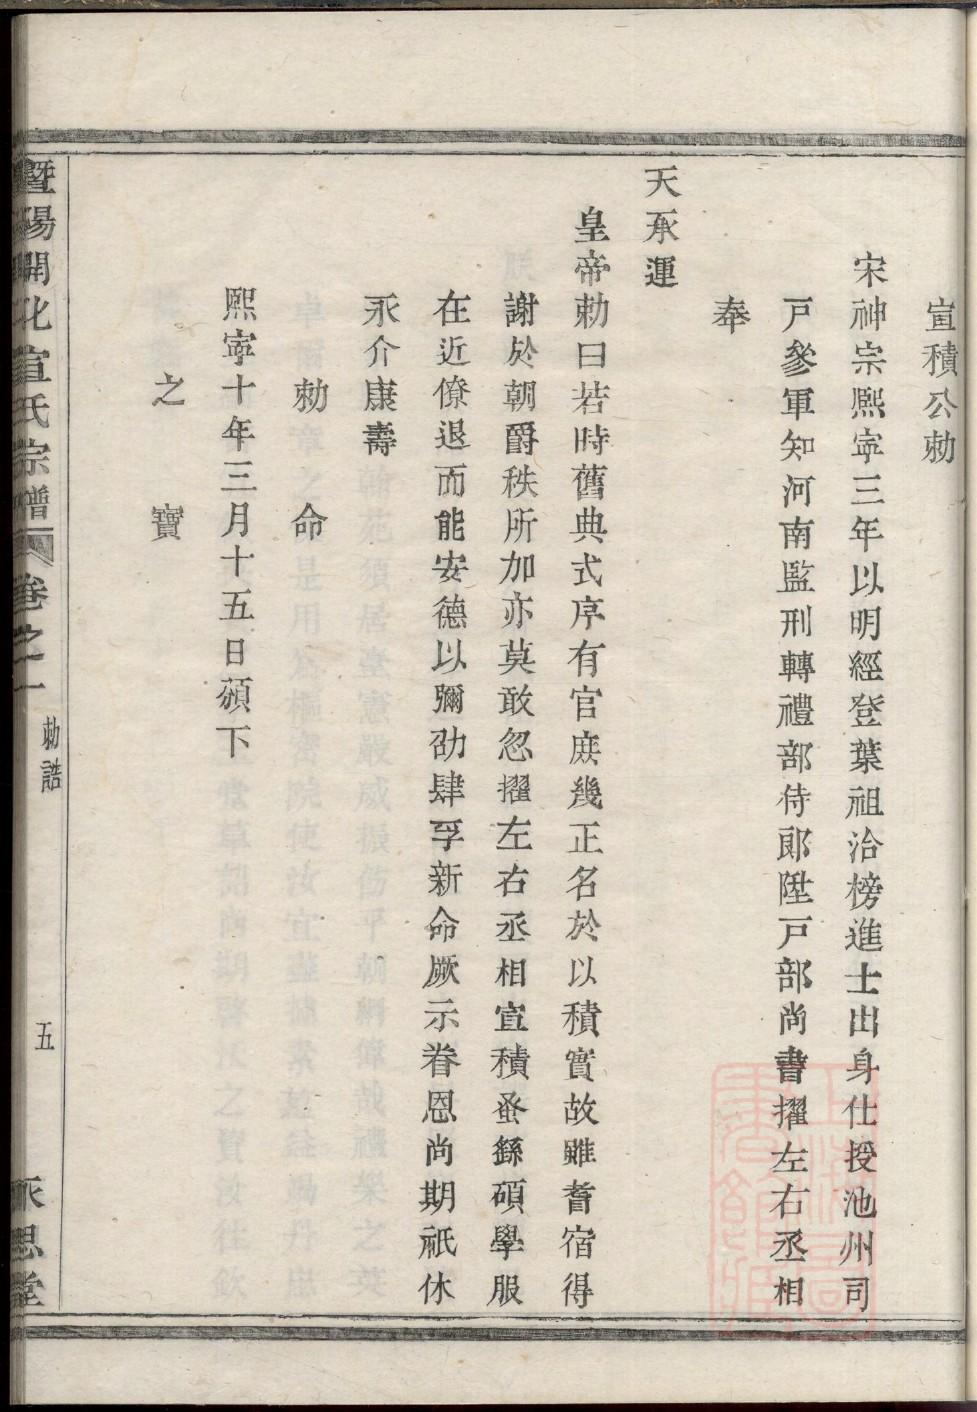 宣積公勅
宋神宗熙寧三年以明經登葉祖洽榜進士出身仕授池州司
戸參軍知河南監刑轉禮部侍郎陞戸部尚書擢左右丞相
奉
天承運
皇帝勅曰若時舊典式序有官庶幾正名於以積實故雖耆宿得
謝於朝爵秩所加亦莫敢忽擢左右丞相宣積蚤繇碩學服
在近僚退而能安德以彌劭肆孚新命厥示眷恩尚期祇休
永介康壽
勅命
熙寧十年三月十五日頒下
之寶
暨陽開化宣氏宗譜 卷之一 勅誥 五 永思堂
上海圖書館藏